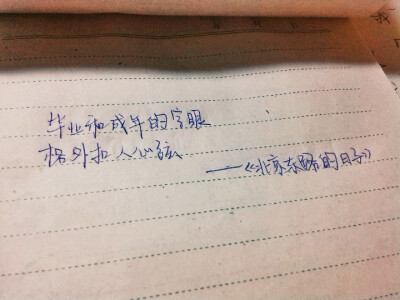 毕业和成年的字眼
格外扣人心弦
——《北京东路的日子》